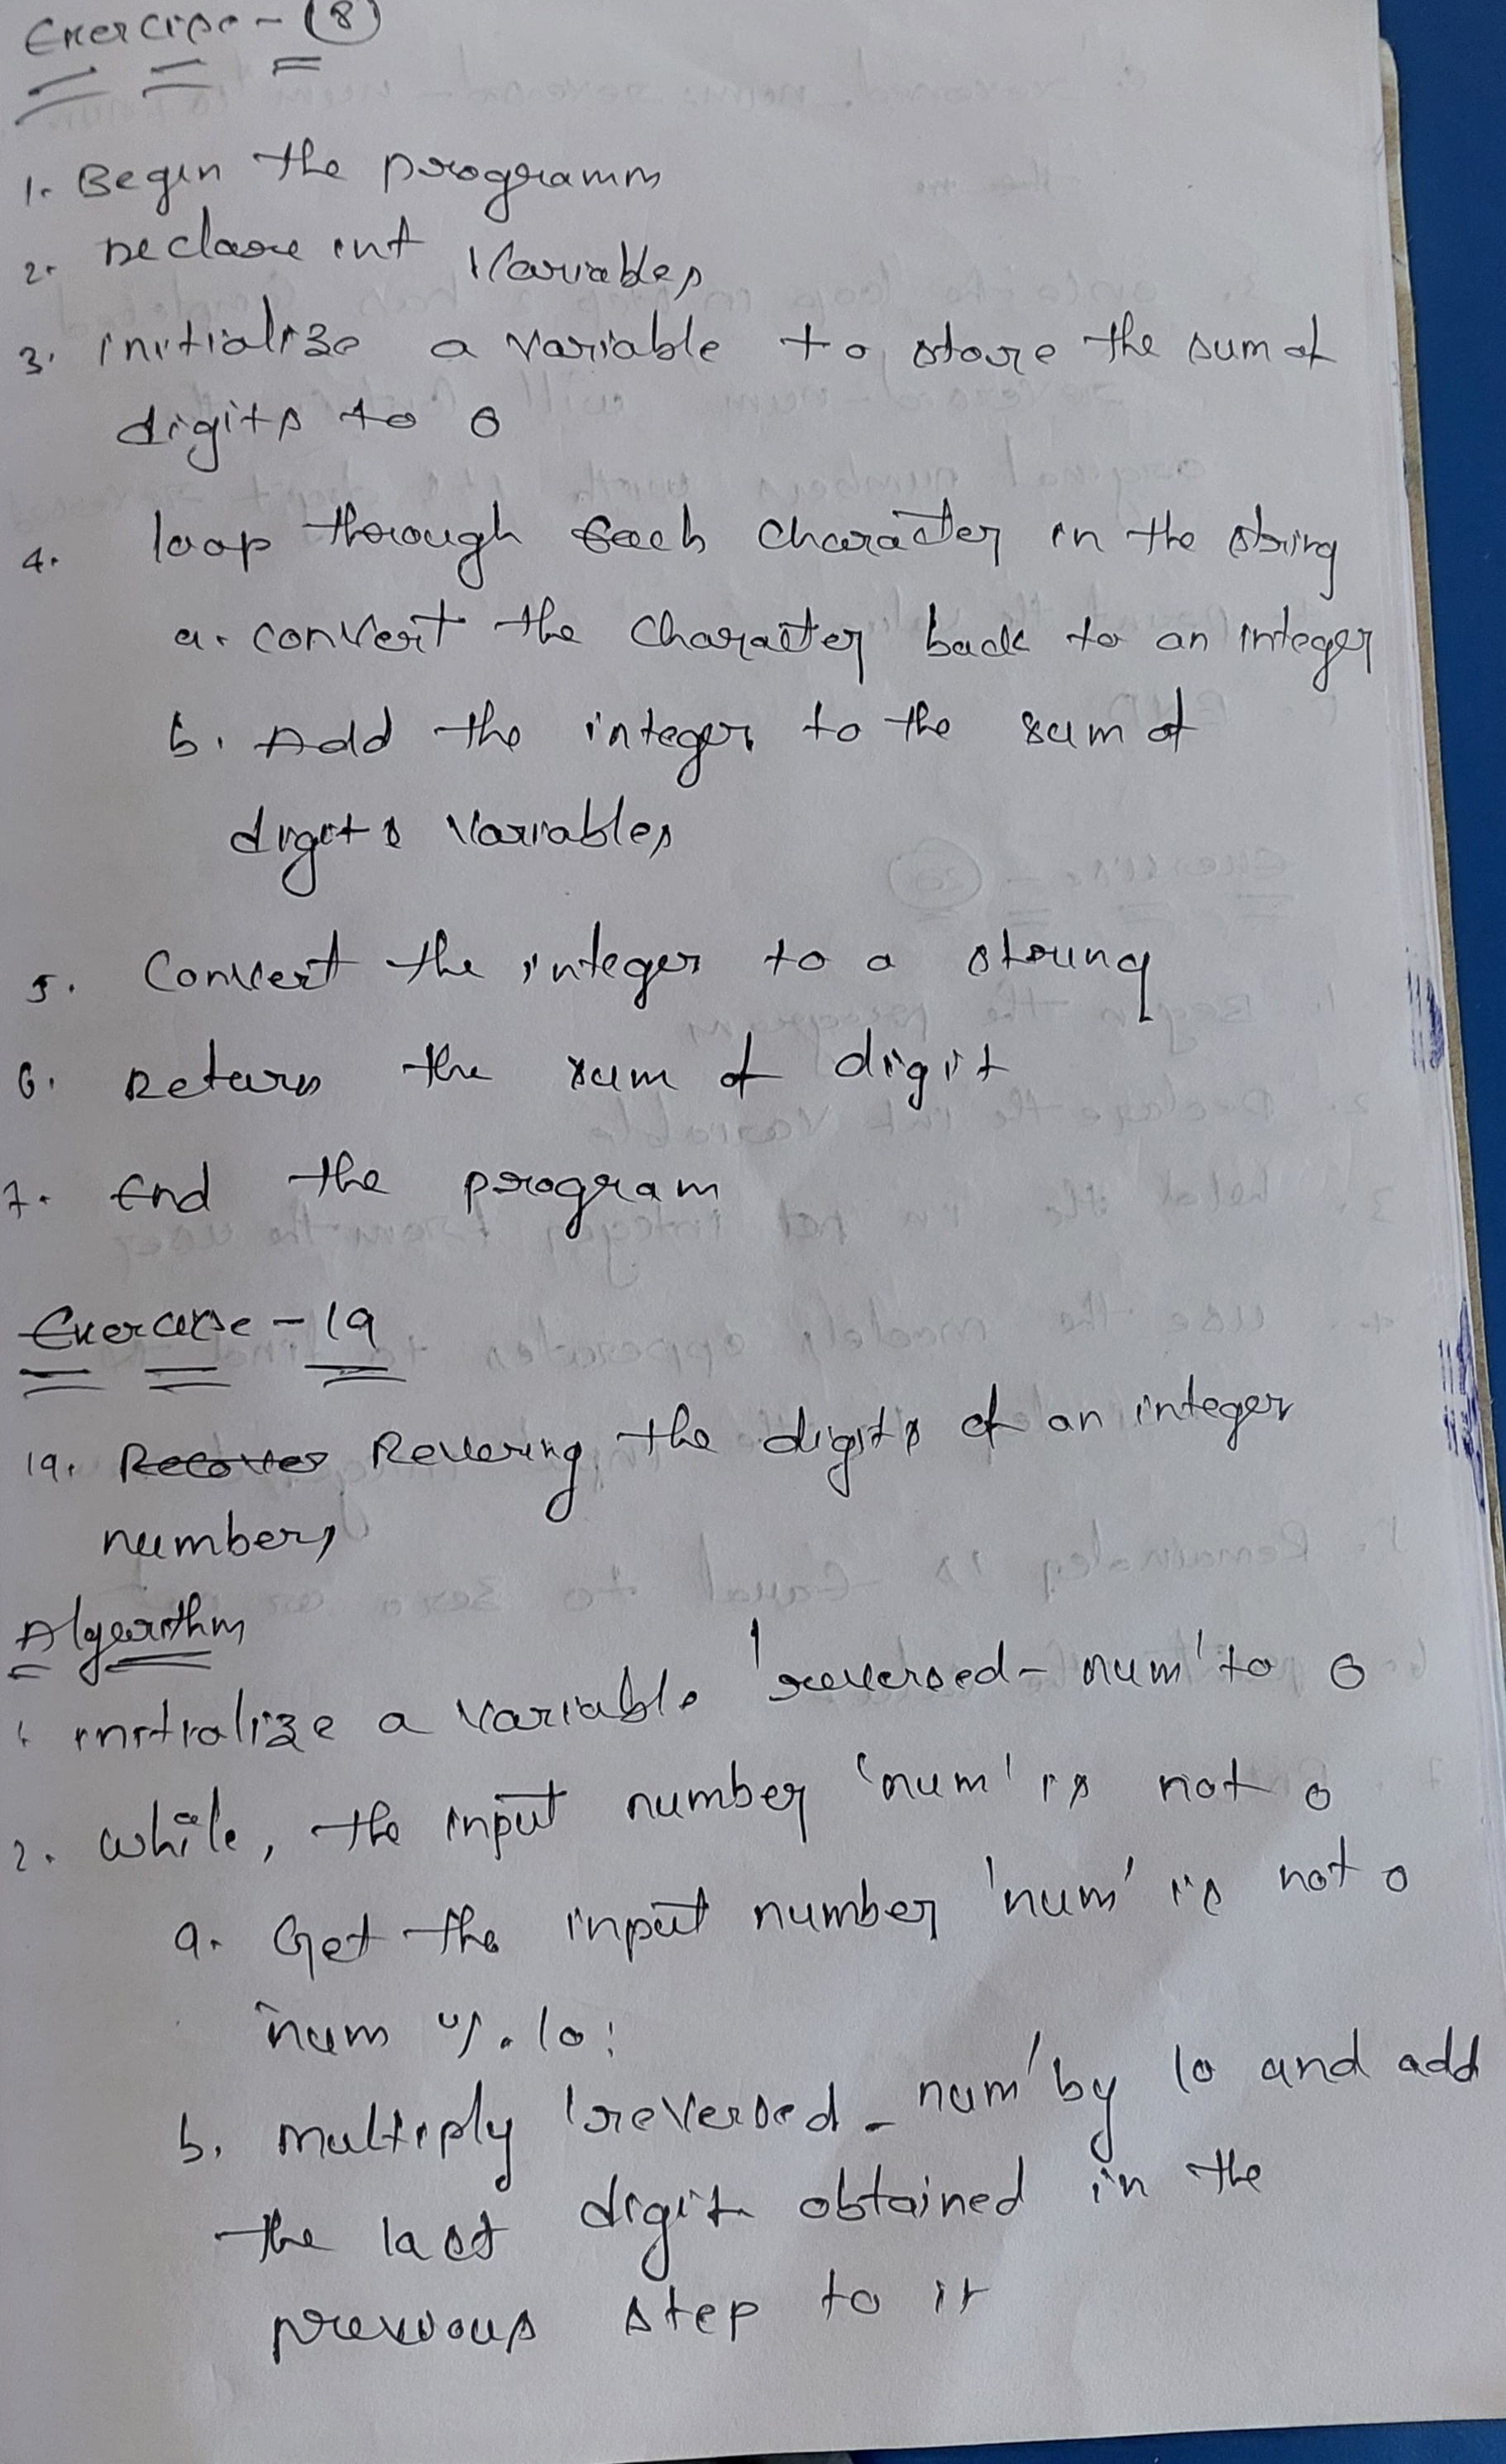 Exercise - (18)
1. Begin the programm
2. Declare int Variables
3. initialize a variable to store the sum of
digits to 0
4. loop through each character in the string
a. convert the character back to an integer
b. Add the integer to the sum of
digits variables
5. Convert the integer to a string
6. Return the sum of digit
7. End the program
Exercise - 19
19. Revering the digits of an integer
numbers
Algorithm
1. initialize a variable 'reversed-num' to 0
2. while, the input number 'num' is not 0
a. Get the input number 'num' is not 0
num % 10:
b. multiply 'reversed_num' by 10 and add
the last digit obtained in the
previous step to it